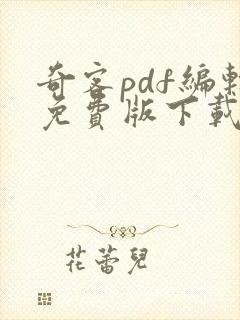 奇客pdf编辑
免費版下載
花蕾兒